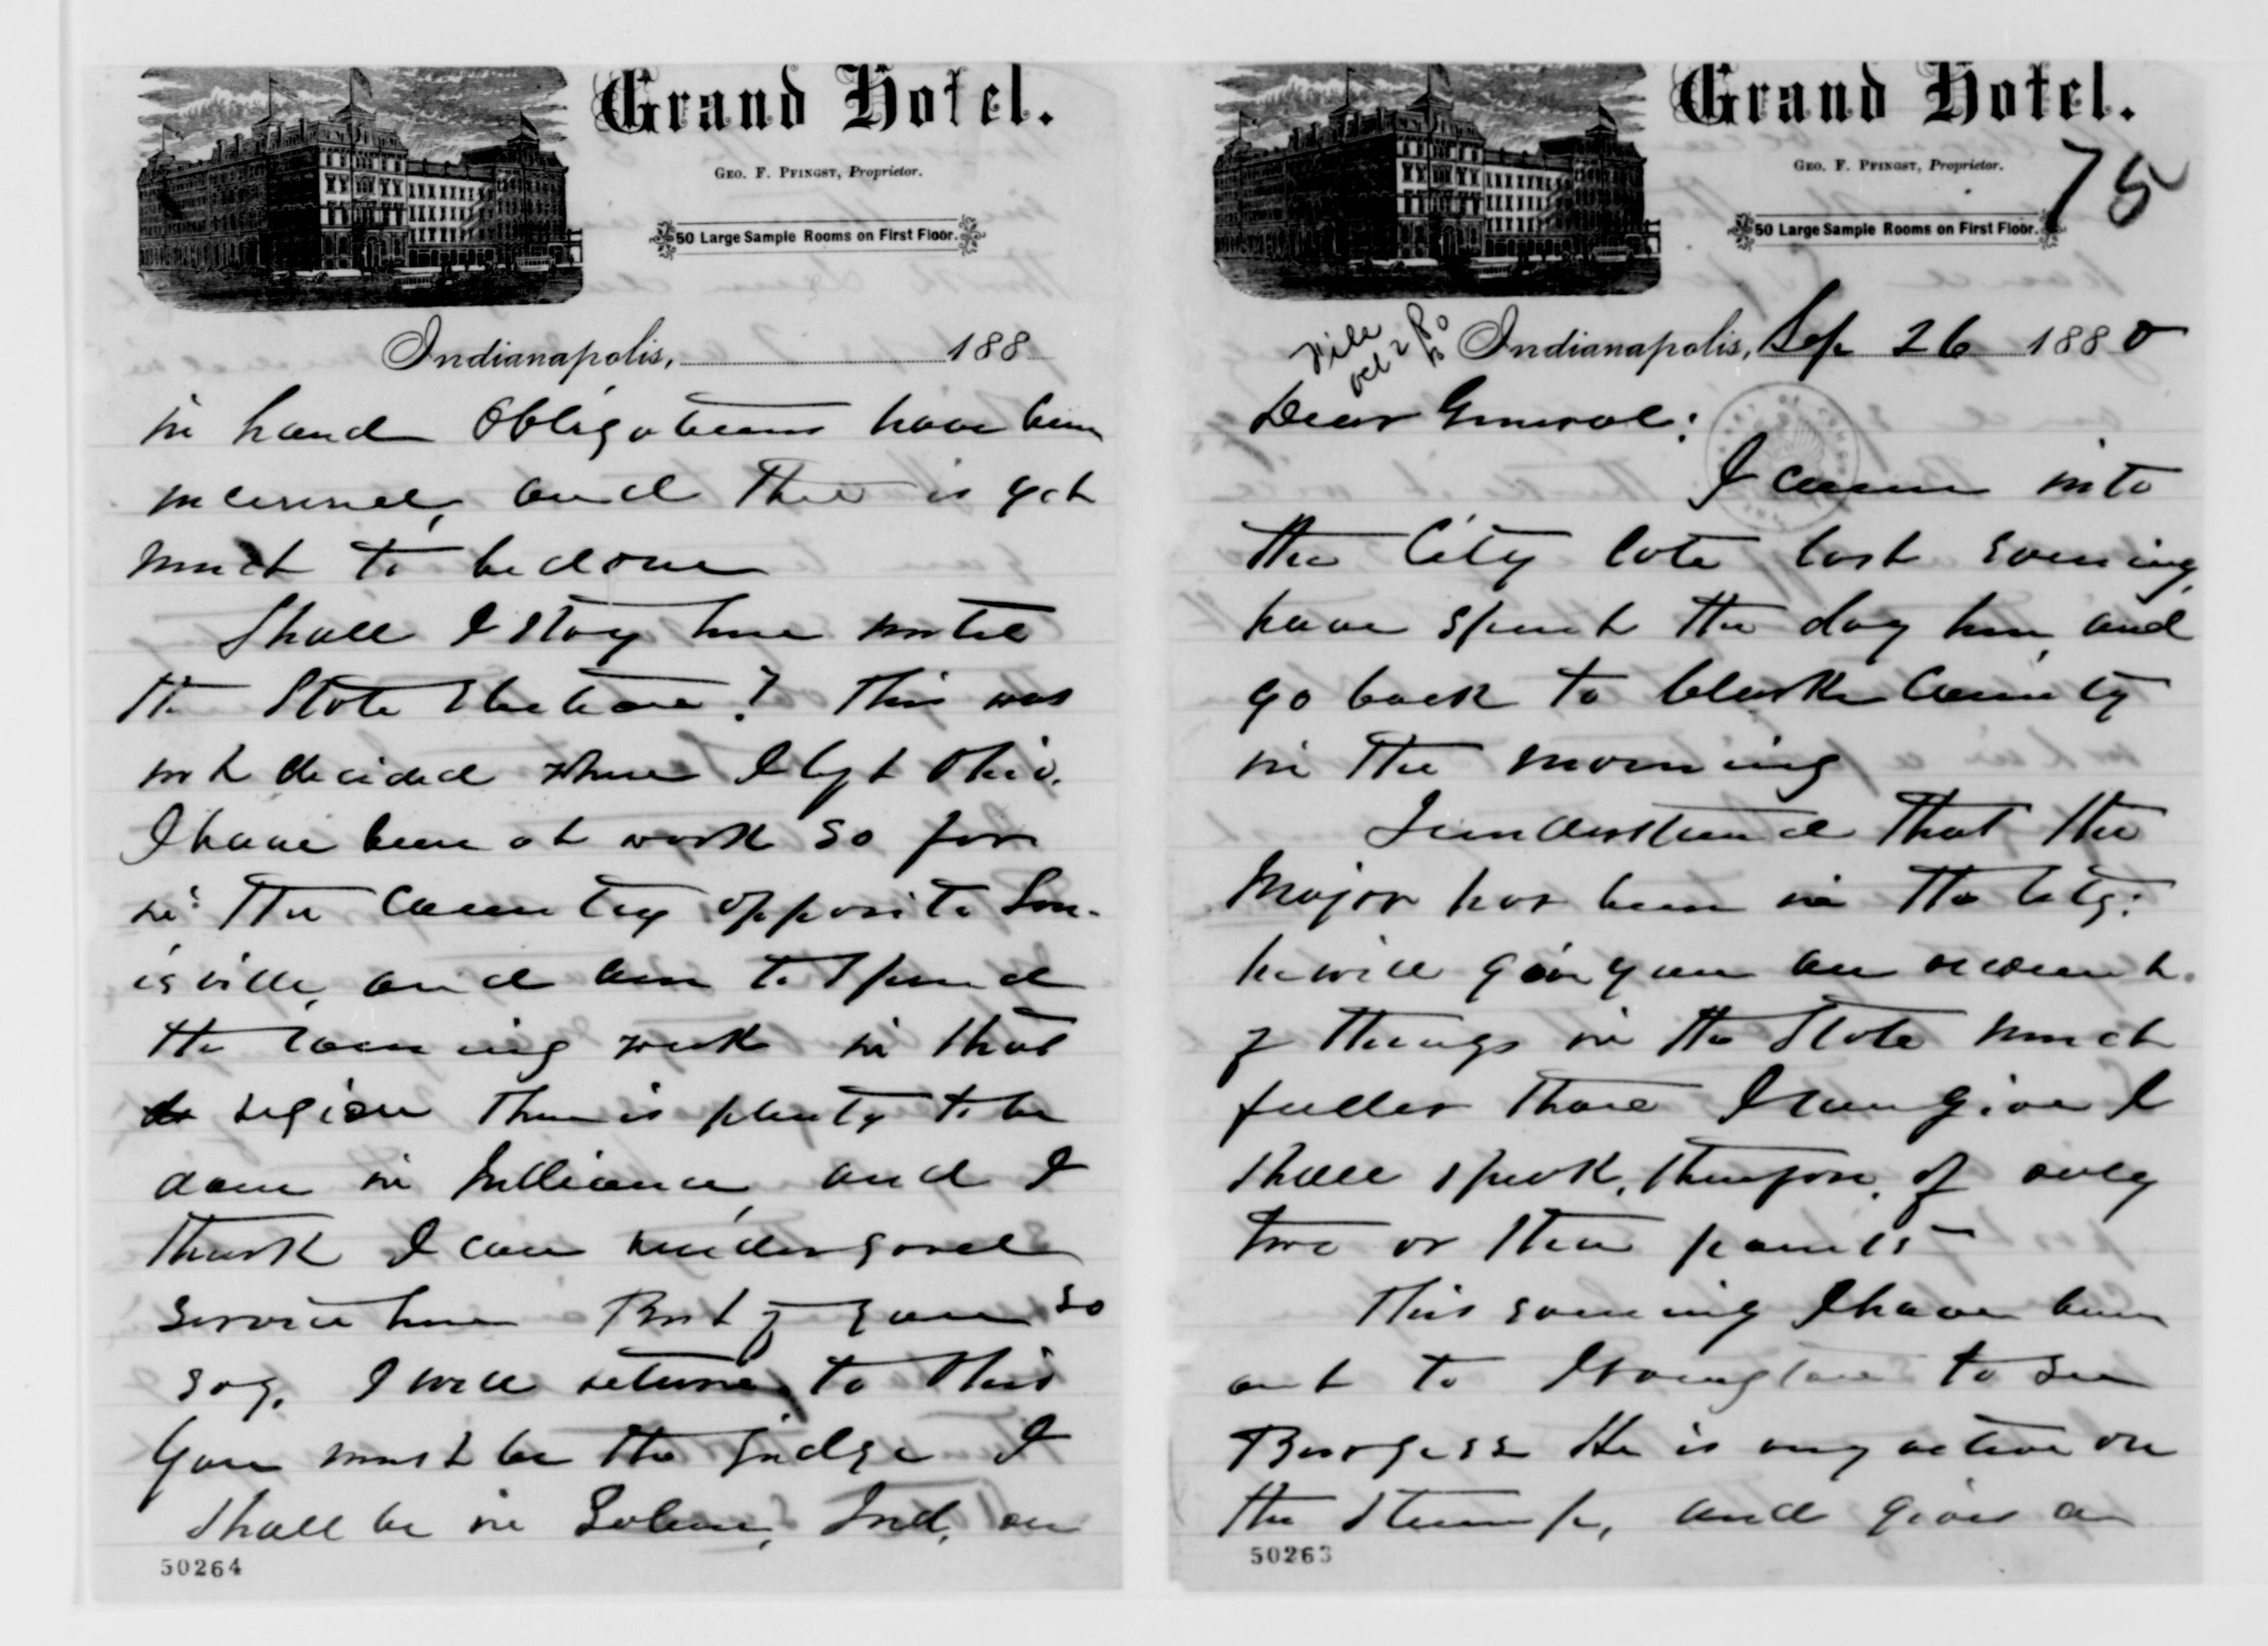 Grand Hotel.
GEO. F. PFINGST, Proprietor.
50 Large Sample Rooms on First Floor.
Indianapolis, 188
in hand Obligations have been
incurred, and there is yet
much to be done
Shall I stay here until
the State Election? This was
not decided when I left Ohio.
I have been at work so far
in the Country opposite Lou-
isville, and am to spend
the coming week in that
region There is plenty to be
done in Indiana, and I
think I can render good
service here But if you so
say, I will return to Ohio
You must be the judge I
shall be in Salem, Ind, on
50264
Grand Hotel.
GEO. F. PFINGST, Proprietor.
75
50 Large Sample Rooms on First Floor.
Oct 2 80
Indianapolis, Sep 26 1880
Dear General:
I came into
the City late last evening,
have spent the day here, and
go back to Clarke County
in the morning
I understand that the
Major has been in the City:
he will give you an account
of things in the State much
fuller than I can give I
shall speak, therefore, of only
two or three points
This evening I have been
out to Irvington to see
Burgess He is very active on
the stump, and gives an
50263